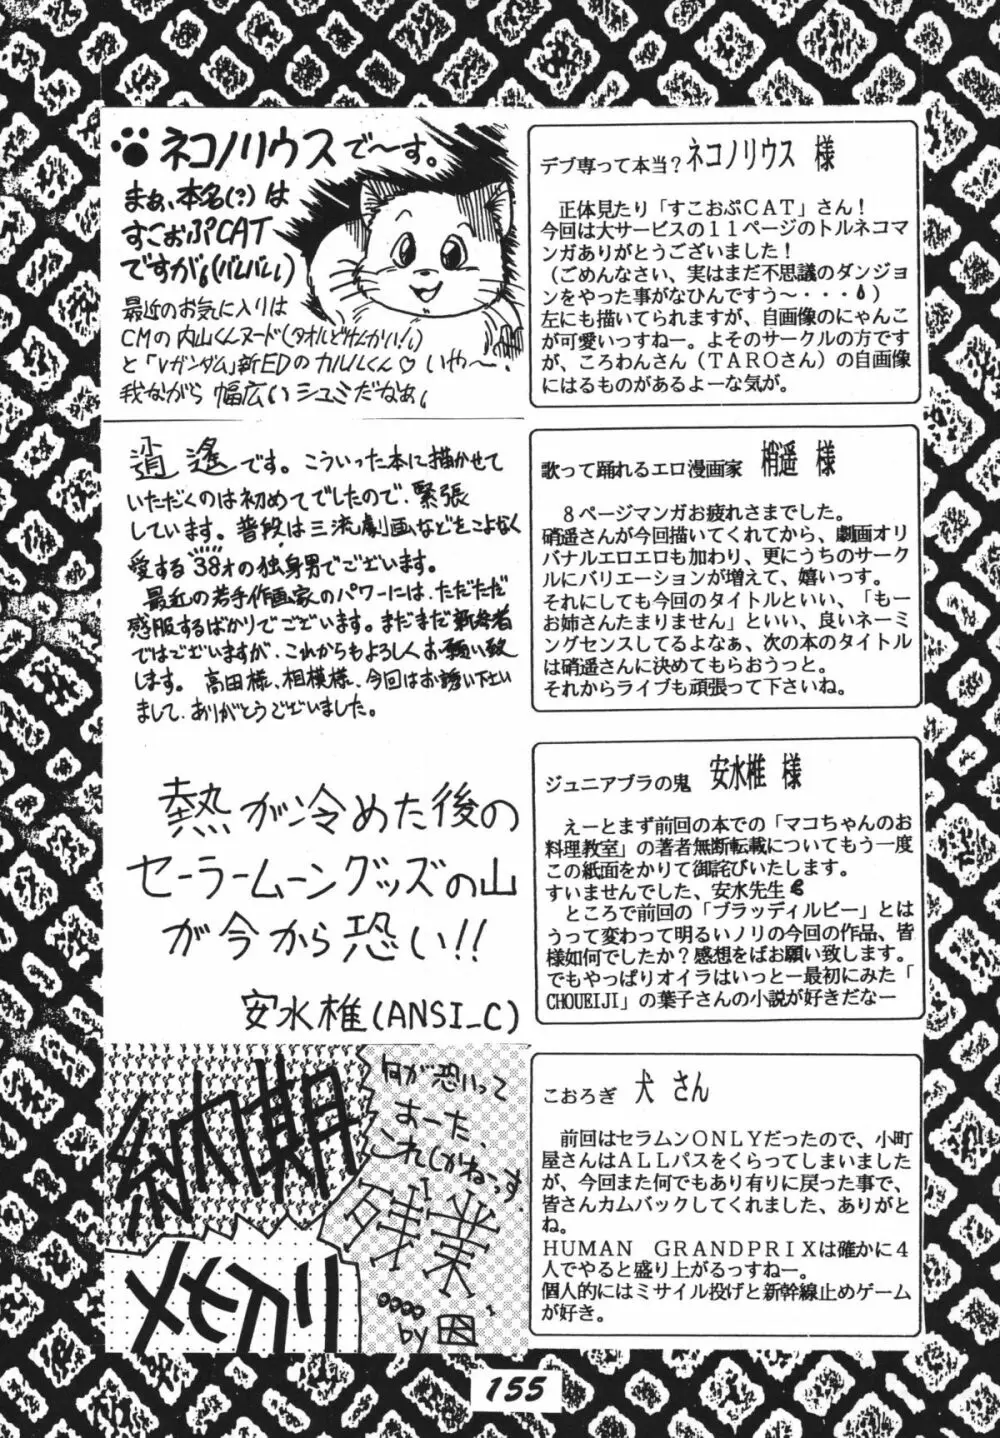 ネコノリウスで〜す。
まぁ、本名(?)は
すこおぷCAT
ですが。(バレバレ)
最近のお気に入りは
CMの内山くんヌード(タオルどけんかい!)
と「Vガンダム」新EDのカルルくん♡ いや〜!
我ながら 幅広いシュミだなぁ。
デブ専って本当?ネコノリウス 様
正体見たり「すこおぷCAT」さん!
今回は大サービスの11ページのトルネコマ
ンガありがとうございました!
(ごめんなさい、実はまだ不思議のダンジョ
ンをやった事がなひんですう〜・・・)
左にも描いてられますが、自画像のにゃんこ
が可愛いっすねー。よそのサークルの方です
が、ころわんさん(TAROさん)の自画像
にはるものがあるよーな気が。
逍遙です。こういった本に描かせて
いただくのは初めてでしたので、緊張
しています。普段は三流劇画などをこよなく
愛する38才の独身男でございます。
最近の若手作画家のパワーには、ただただ
感服するばかりでございます。まだまだ新参者
ではございますが、これからもよろしくお願い致
します。 高田様、相模様、今回はお誘い下さい
まして、ありがとうございました。
歌って踊れるエロ漫画家 梢遥 様
8ページマンガお疲れさまでした。
硝遥さんが今回描いてくれてから、劇画オリ
バナルエロエロも加わり、更にうちのサーク
ルにバリエーションが増えて、嬉いっす。
それにしても今回のタイトルといい、「もー
お姉さんたまりません」といい、良いネーミ
ングセンスしてるよなぁ、次の本のタイトル
は硝遥さんに決めてもらおうっと。
それからライブも頑張って下さいね。
熱が冷めた後の
セーラームーングッズの山
が今から恐い!!
安水椎(ANSI_C)
ジュニアブラの鬼 安水椎 様
えーとまず前回の本での「マコちゃんのお
料理教室」の著者無断転載についてもう一度
この紙面をかりて御詫びいたします。
すいませんでした、安水先生
ところで前回の「ブラッディルビー」とは
うって変わって明るいノリの今回の作品、皆
様如何でしたか?感想をばお願い致します。
でもやっぱりオイラはいっとー最初にみた「
CHOUEIJI」の葉子さんの小説が好きだなー
何が恐いって
おーた、
これしかねーっす
納期
残業
メキリ
by 因
こおろぎ 犬 さん
前回はセラムンONLYだったので、小町
屋さんはALLパスをくらってしまいました
が、今回また何でもあり有りに戻った事で、
皆さんカムバックしてくれました、ありがと
ね。
HUMAN GRANDPRIXは確かに4
人でやると盛り上がるっすねー。
個人的にはミサイル投げと新幹線止めゲーム
が好き。
155